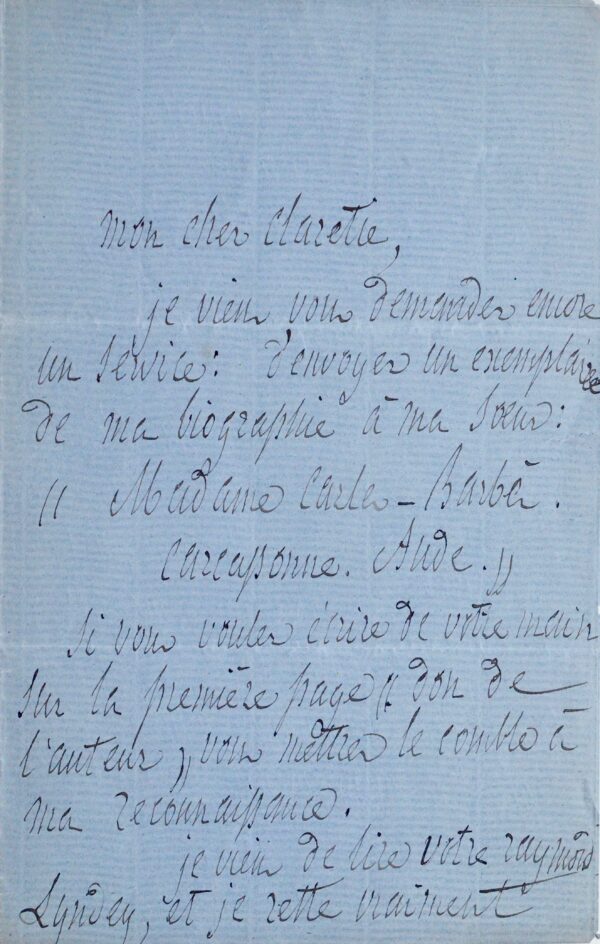 mon cher Claretie,
je viens vous demander encore
un service: d'envoyer un exemplaire
de ma biographie à ma sœur:
" Madame Carles-Barbès.
Carcassonne. Aude. "
Si vous voulez écrire de votre main
sur la première page " don de
l'auteur " vous mettrez le comble à
ma reconnaissance.
je viens de lire votre raymond
Lyndey, et je reste vraiment